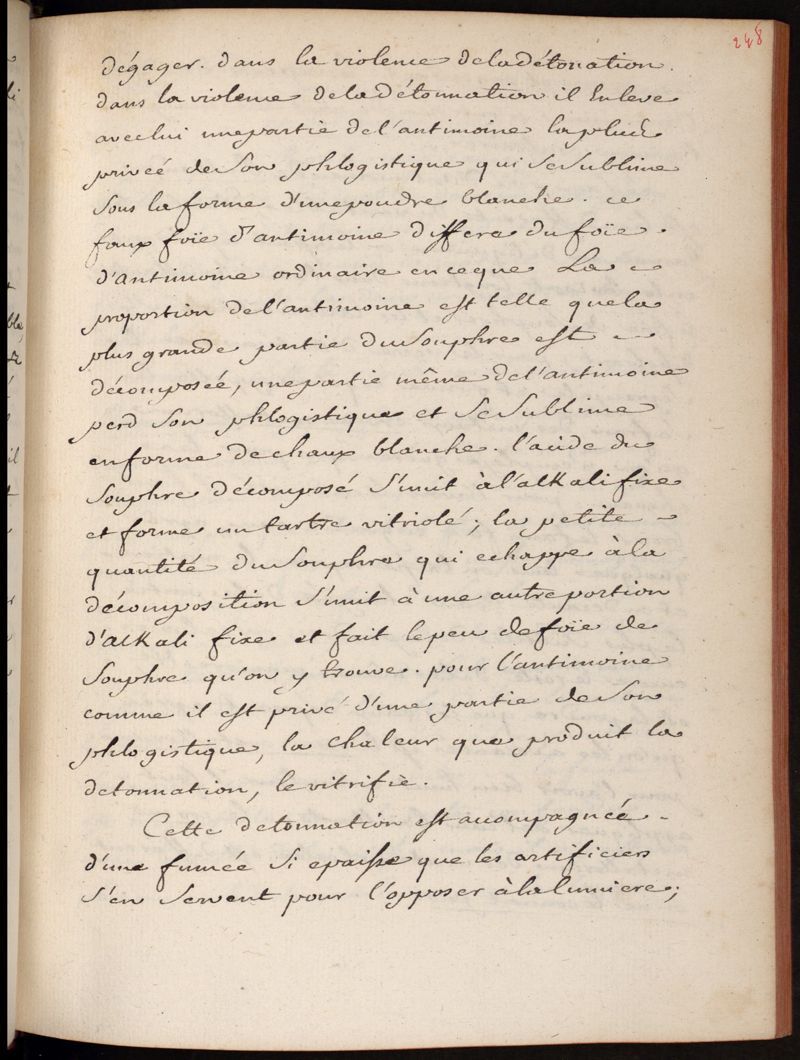 248
dégager. dans la violence de la détonation.
dans la violence de la détonnation il Enleve
avec lui une partie de l'antimoine la plus
privée de son phlogistique qui se sublime
sous la forme d'une poudre blanche. ce
faux foïe d'antimoine differe du foïe
d'antimoine ordinaire en ce que La
proportion de l'antimoine est telle que la
plus grande partie du souphre est
décomposée, une partie même de l'antimoine
perd son phlogistique et se sublime
en forme de chaux blanche. l'acide du
souphre décomposé s'unit à l'alkali fixe
et forme un tartre vitriolé; la petite
quantité du souphre qui echappe à la
décomposition s'unit à une autre portion
d'alkali fixe et fait le peu de foïe de
souphre qu'on y trouve. pour l'antimoine
comme il est privé d'une partie de son
phlogistique, la chaleur que produit la
detonnation, le vitrifie.
Cette detonnation est acompagnée
d'une fumée si epaisse que les artificiers
s'en servent pour l'opposer à la lumiere;